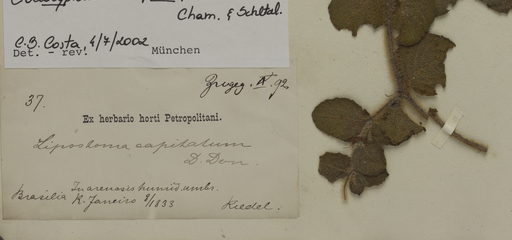 Cham. & Schltdl.
C.B. Costa, 4/7/2002
Det. - rev. München
Zugeg. IX. 92
37.
Ex herbario horti Petropolitani.
Lipostoma capitatum
D. Don.
In arenosis humid. umbr.
Brasilia R. Janeiro 9/1833
Riedel.